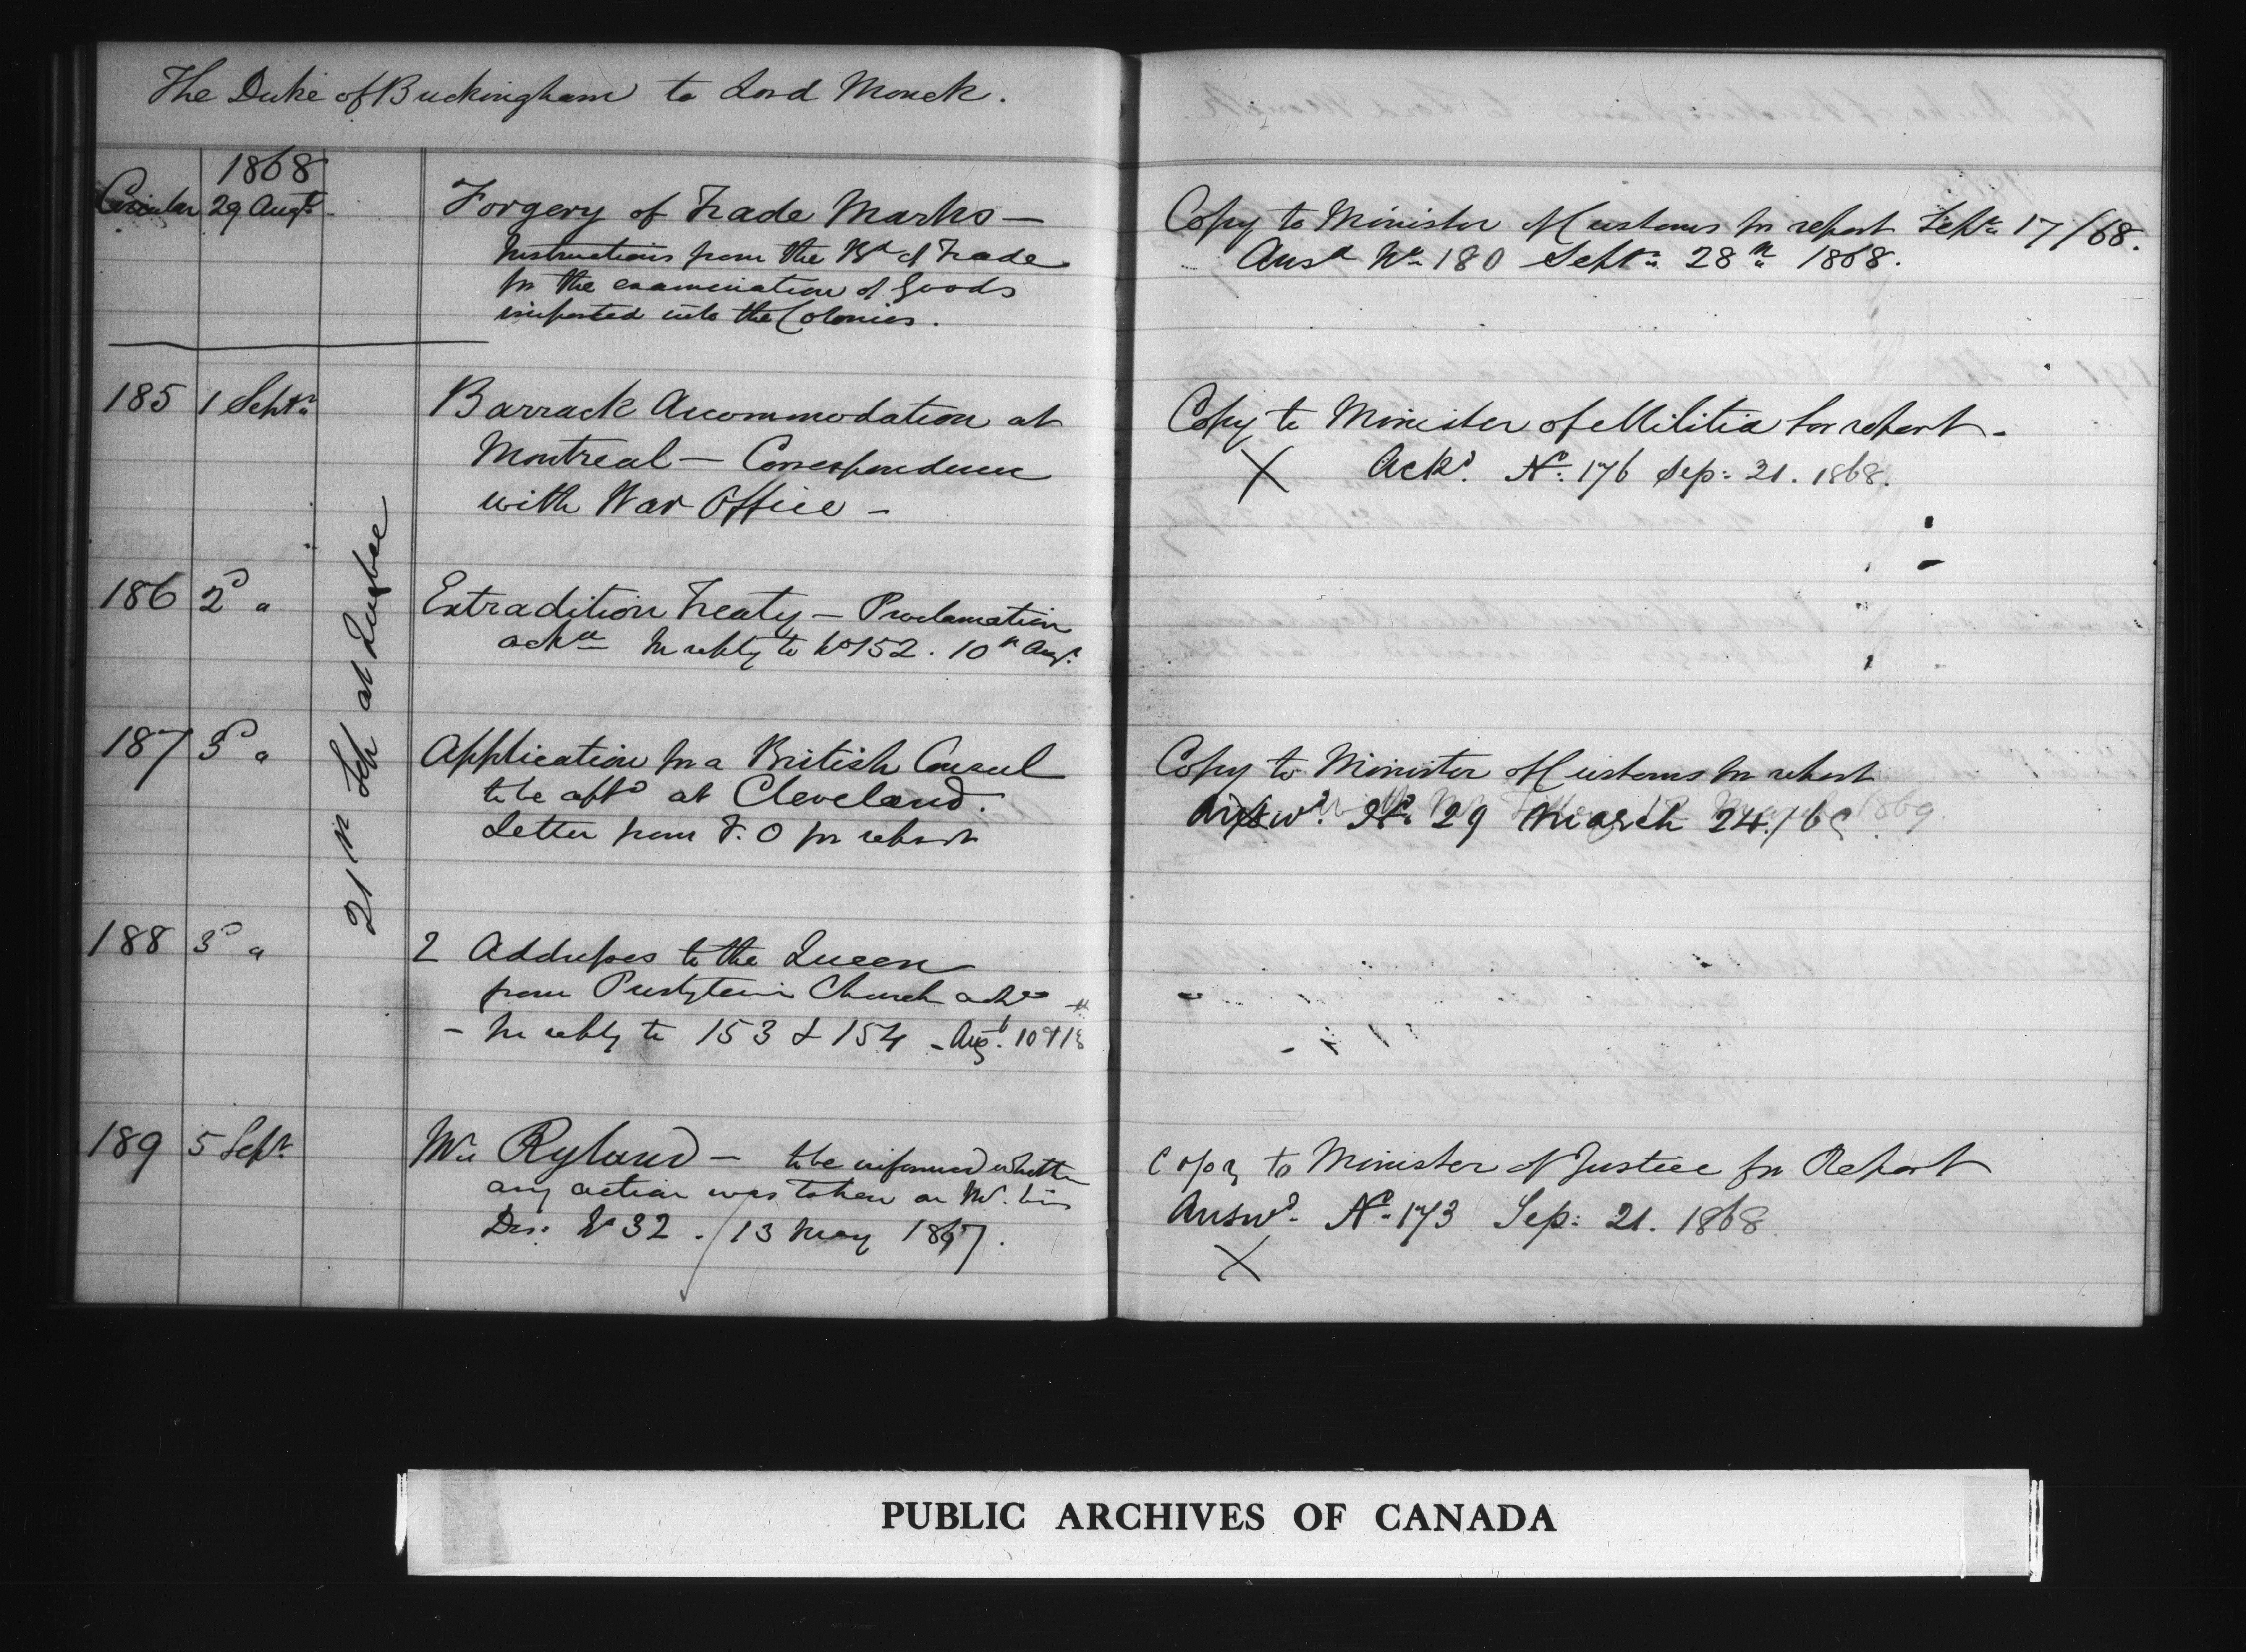 The Duke of Buckingham to Lord Monck.
1868
Circular 29 Augt. Forgery of Trade Marks — Copy to Minister of Customs for report Septr. 17/68.
Instructions from the Bd of Trade Ansd No 180 Septr. 28th 1868.
for the examination of Goods
imported into the Colonies.
185 1 Septr. Barrack Accommodation at Copy to Minister of Militia for report -
Montreal — Correspondence X Ackd. No. 176 Sep: 21. 1868.
with War Office -
21st Sept at Quebec
186 2d " Extradition Treaty — Proclamation
ackd In reply to No 152. 10th Augt.
187 3d " Application for a British Consul Copy to Minister of Customs for report
to be aptd at Cleveland. Answd. No. 29 March 24./69
Letter from F.O for report
188 3d " 2 Addresses to the Queen
from Presbyterian Church ackd
- In reply to 153 & 154 - Augt. 10 & 18
189 5 Sept. Mr Ryland — to be informed whether Copy to Minister of Justice for Report
any action was taken on Answd. No. 173 Sep: 21. 1868
Des: No 32. 13 May 1867. X
PUBLIC ARCHIVES OF CANADA